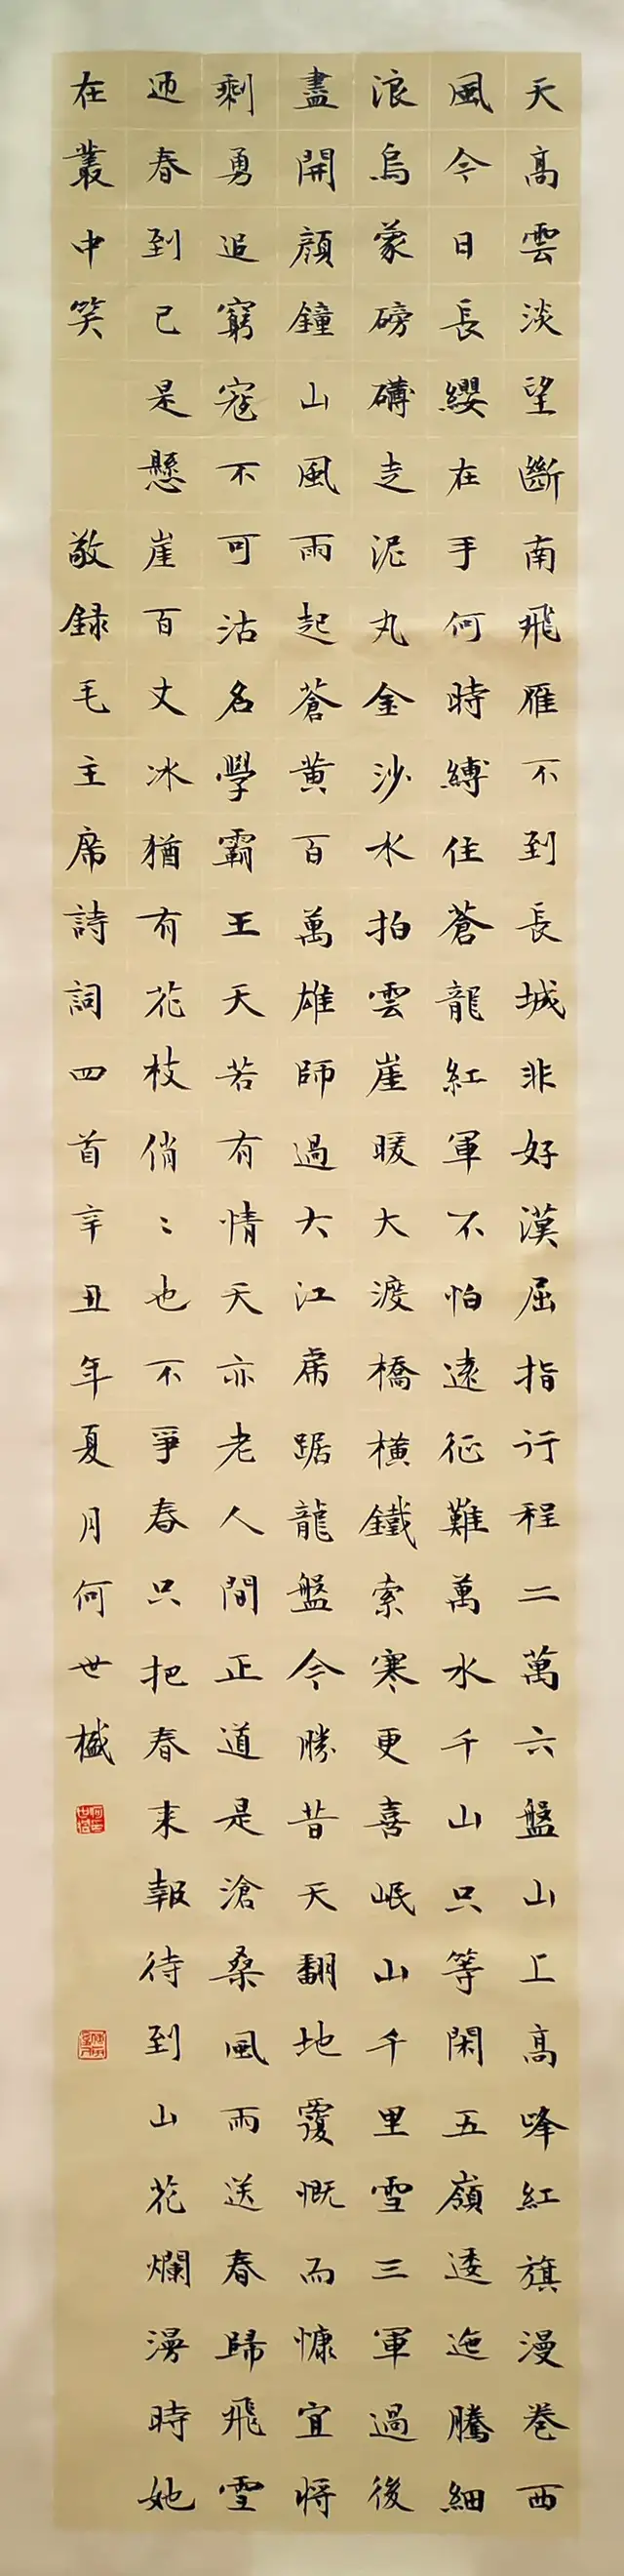 天高雲淡望斷南飛雁不到長城非好漢屈指行程二萬六盤山上高峰紅旗漫卷西
風今日長纓在手何時縛住蒼龍紅軍不怕遠征難萬水千山只等閑五嶺逶迤騰細
浪烏蒙磅礴走泥丸金沙水拍雲崖暖大渡橋橫鐵索寒更喜岷山千里雪三軍過後
盡開顏鐘山風雨起蒼黃百萬雄師過大江虎踞龍盤今勝昔天翻地覆慨而慷宜將
剩勇追窮寇不可沽名學霸王天若有情天亦老人間正道是滄桑風雨送春歸飛雪
迎春到已是懸崖百丈冰猶有花枝俏〻也不爭春只把春來報待到山花爛漫時她
在叢中笑 敬録毛主席詩詞四首辛丑年夏月何世